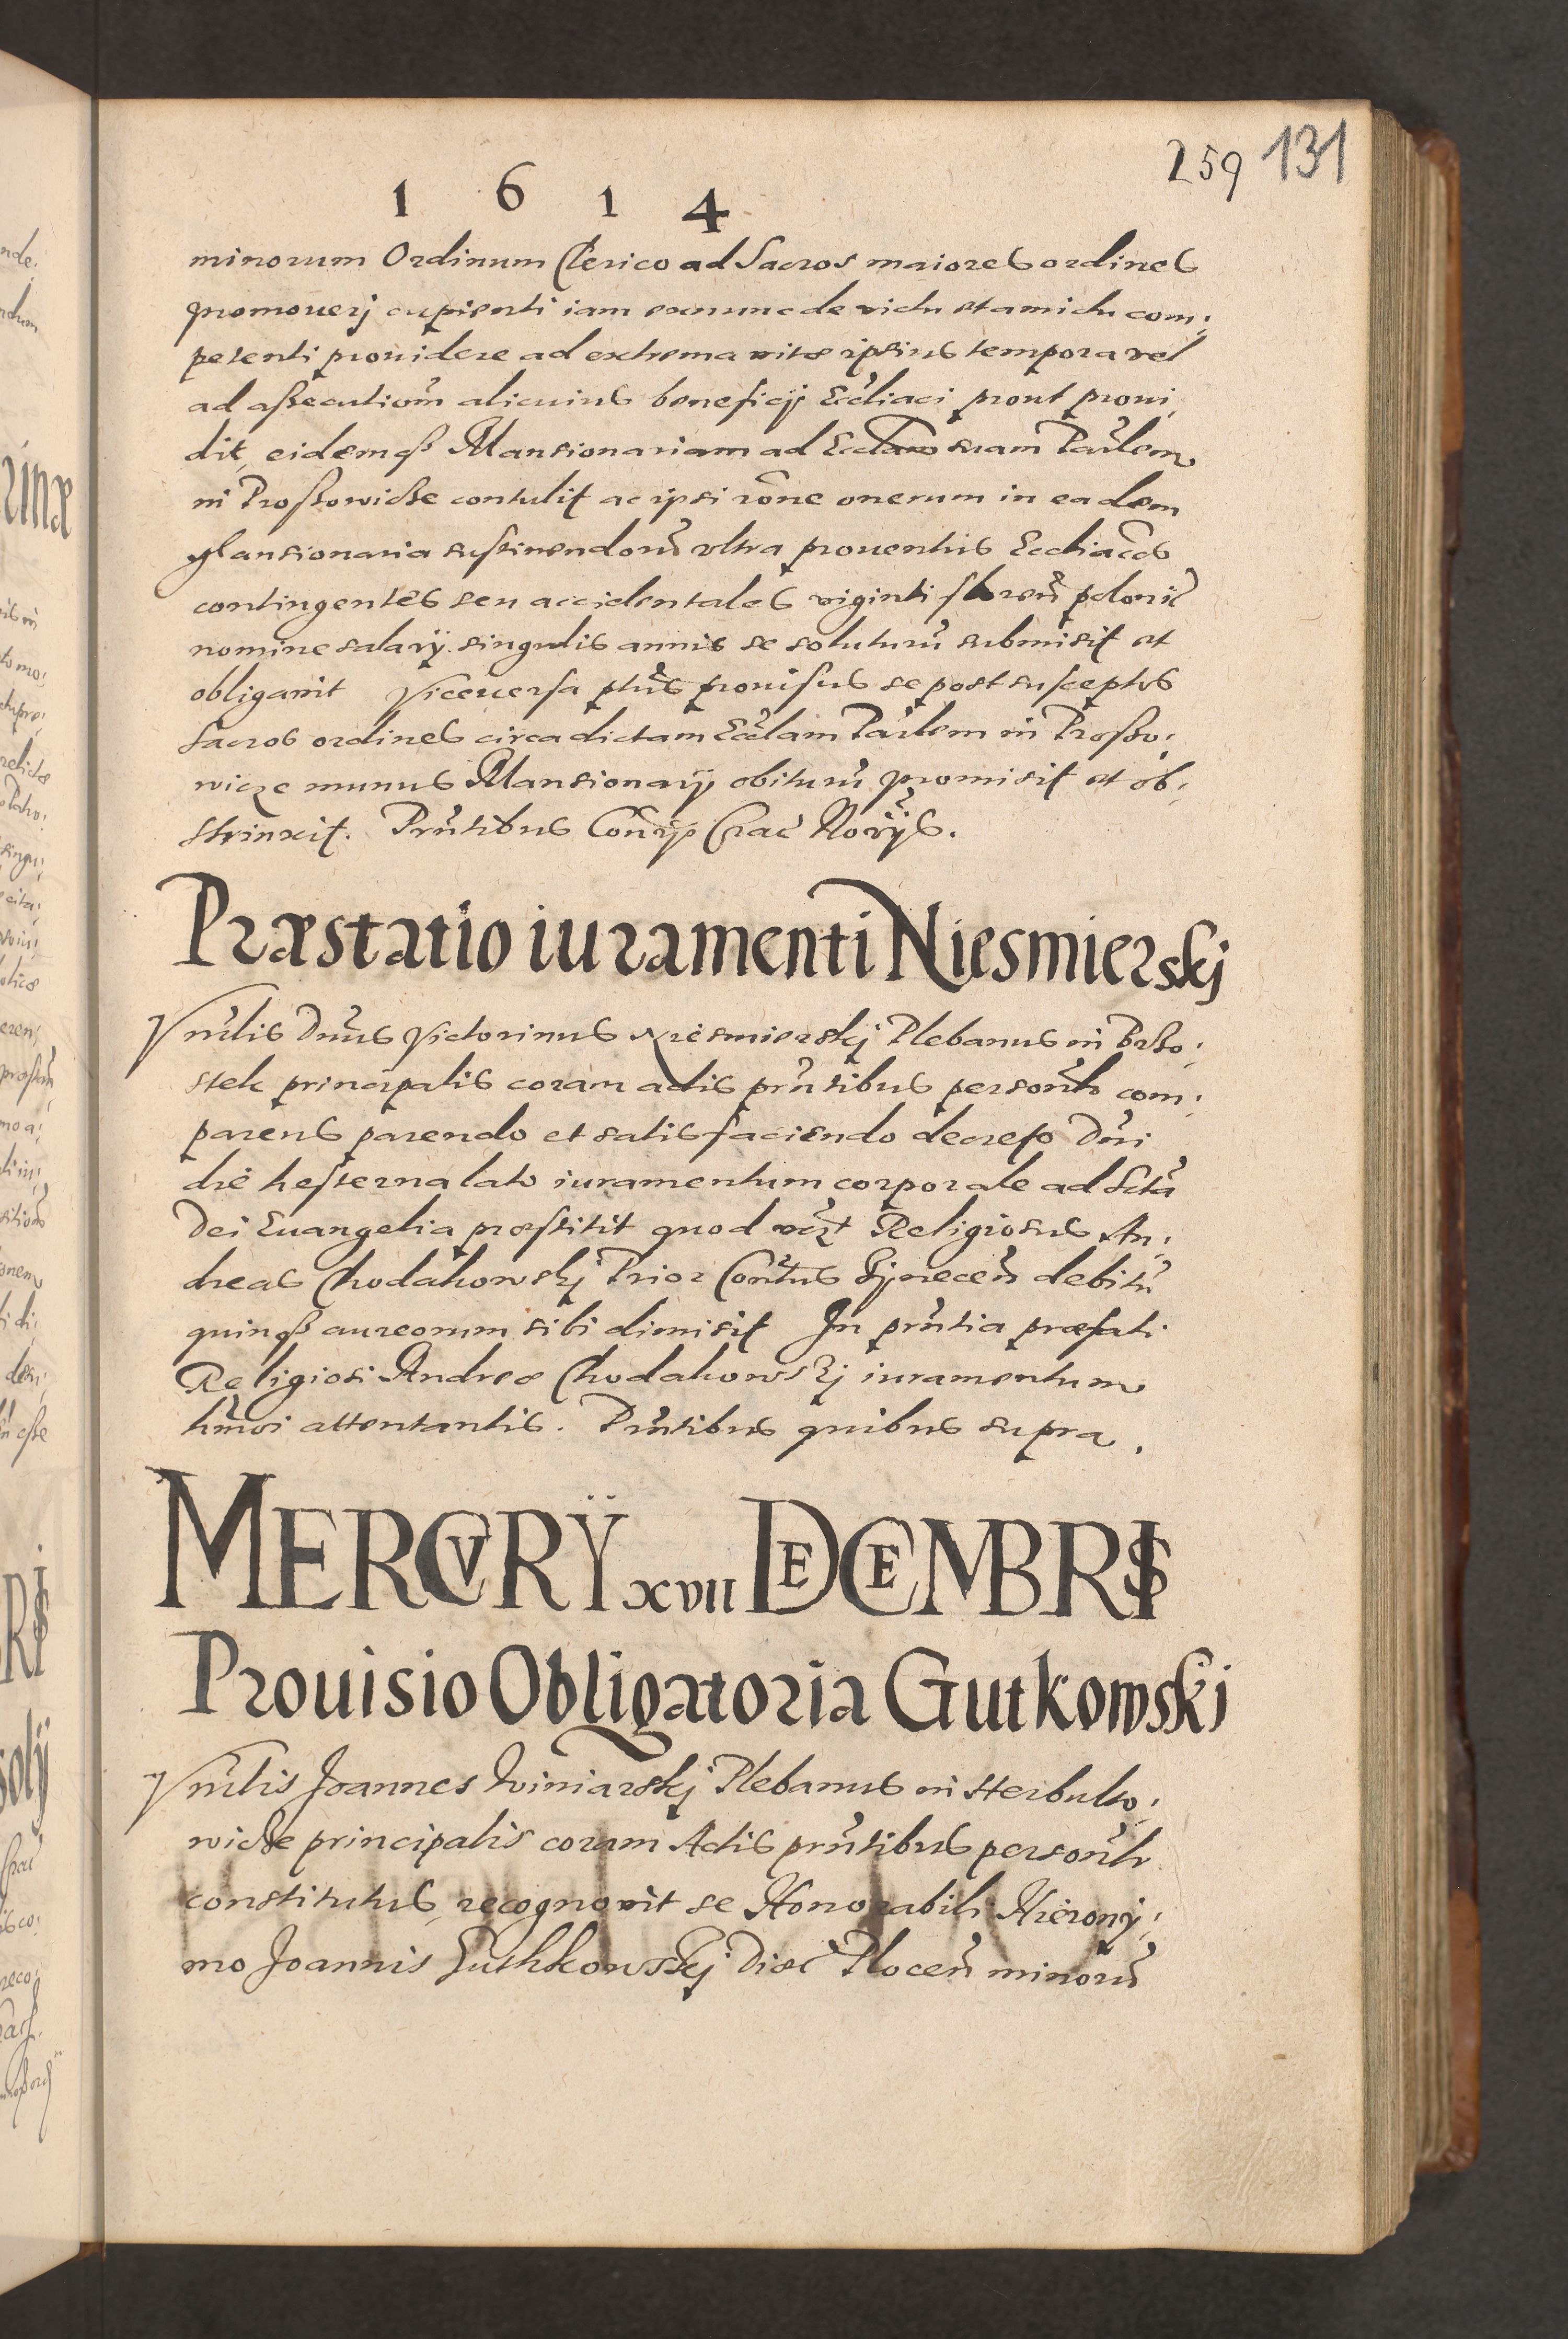 259 131
1 6 1 4
minorum Ordinum Clerico ad Sacros maiores ordines
promouerj cupienti iam exnunc de victu et amictu com:
petenti prouidere ad extrema vitæ ipsius tempora vel
ad aßecutiom̃ alicuius beneficij Eccl̃iaci prout proui:
dit, eidemqß Mansionariam ad suam Paŕlem
in Proßowicße contulit ac ipsi rõne onerum in eadem
Mansionaria sustinendorũ vltra prouentus Eccl̃iacos
contingentes seu accidentales viginti floreñ polonic̃
nomine salarij singulis annis se soluturũ submisit et
obligauit Viceuersa pt̃us prouisus se post susceptos
Sacros ordines circa dictam Eccl̃am Paŕlem in Proßo:
wicze munus Mansionarij obiturũ promisit et ob:
strinxit. Prñtibus Coñrijs Crac̃ Norijs.
Præstatio iuramenti Niesmierskj
Vnr̃lis Dnũs Victorinus Niesmierskj Plebanus in Brzo:
stek principalis coram actis prñtibus persoñlr com:
parens parendo et satisfaciendo decreto Dñi
die hesterna lato iuramentum corporale ad Sctã
Dei Euangelia præstitit quod Religiosus An:
dreas Chodakowskj Prior Coñtus debitũ
quinqß aureorum sibi dimisit In prñtia præfati
Religiosi Andreæ Chodakowskj iuramentum
hm̃oi attentantis. Prñtibus quibus supra.
MERCVRY xvii DECEMBRIS
Prouisio Obligatoria Gutkowski
Vnr̃lis Joannes Winiarskj Plebanus in Herbulto:
wicße principalis coram Actis prñtibus persoñlr
constitutus, recognovit se Honorabili Hierony:
mo Joannis Guthkowskj Diæc̃ Ploceñ minorũ